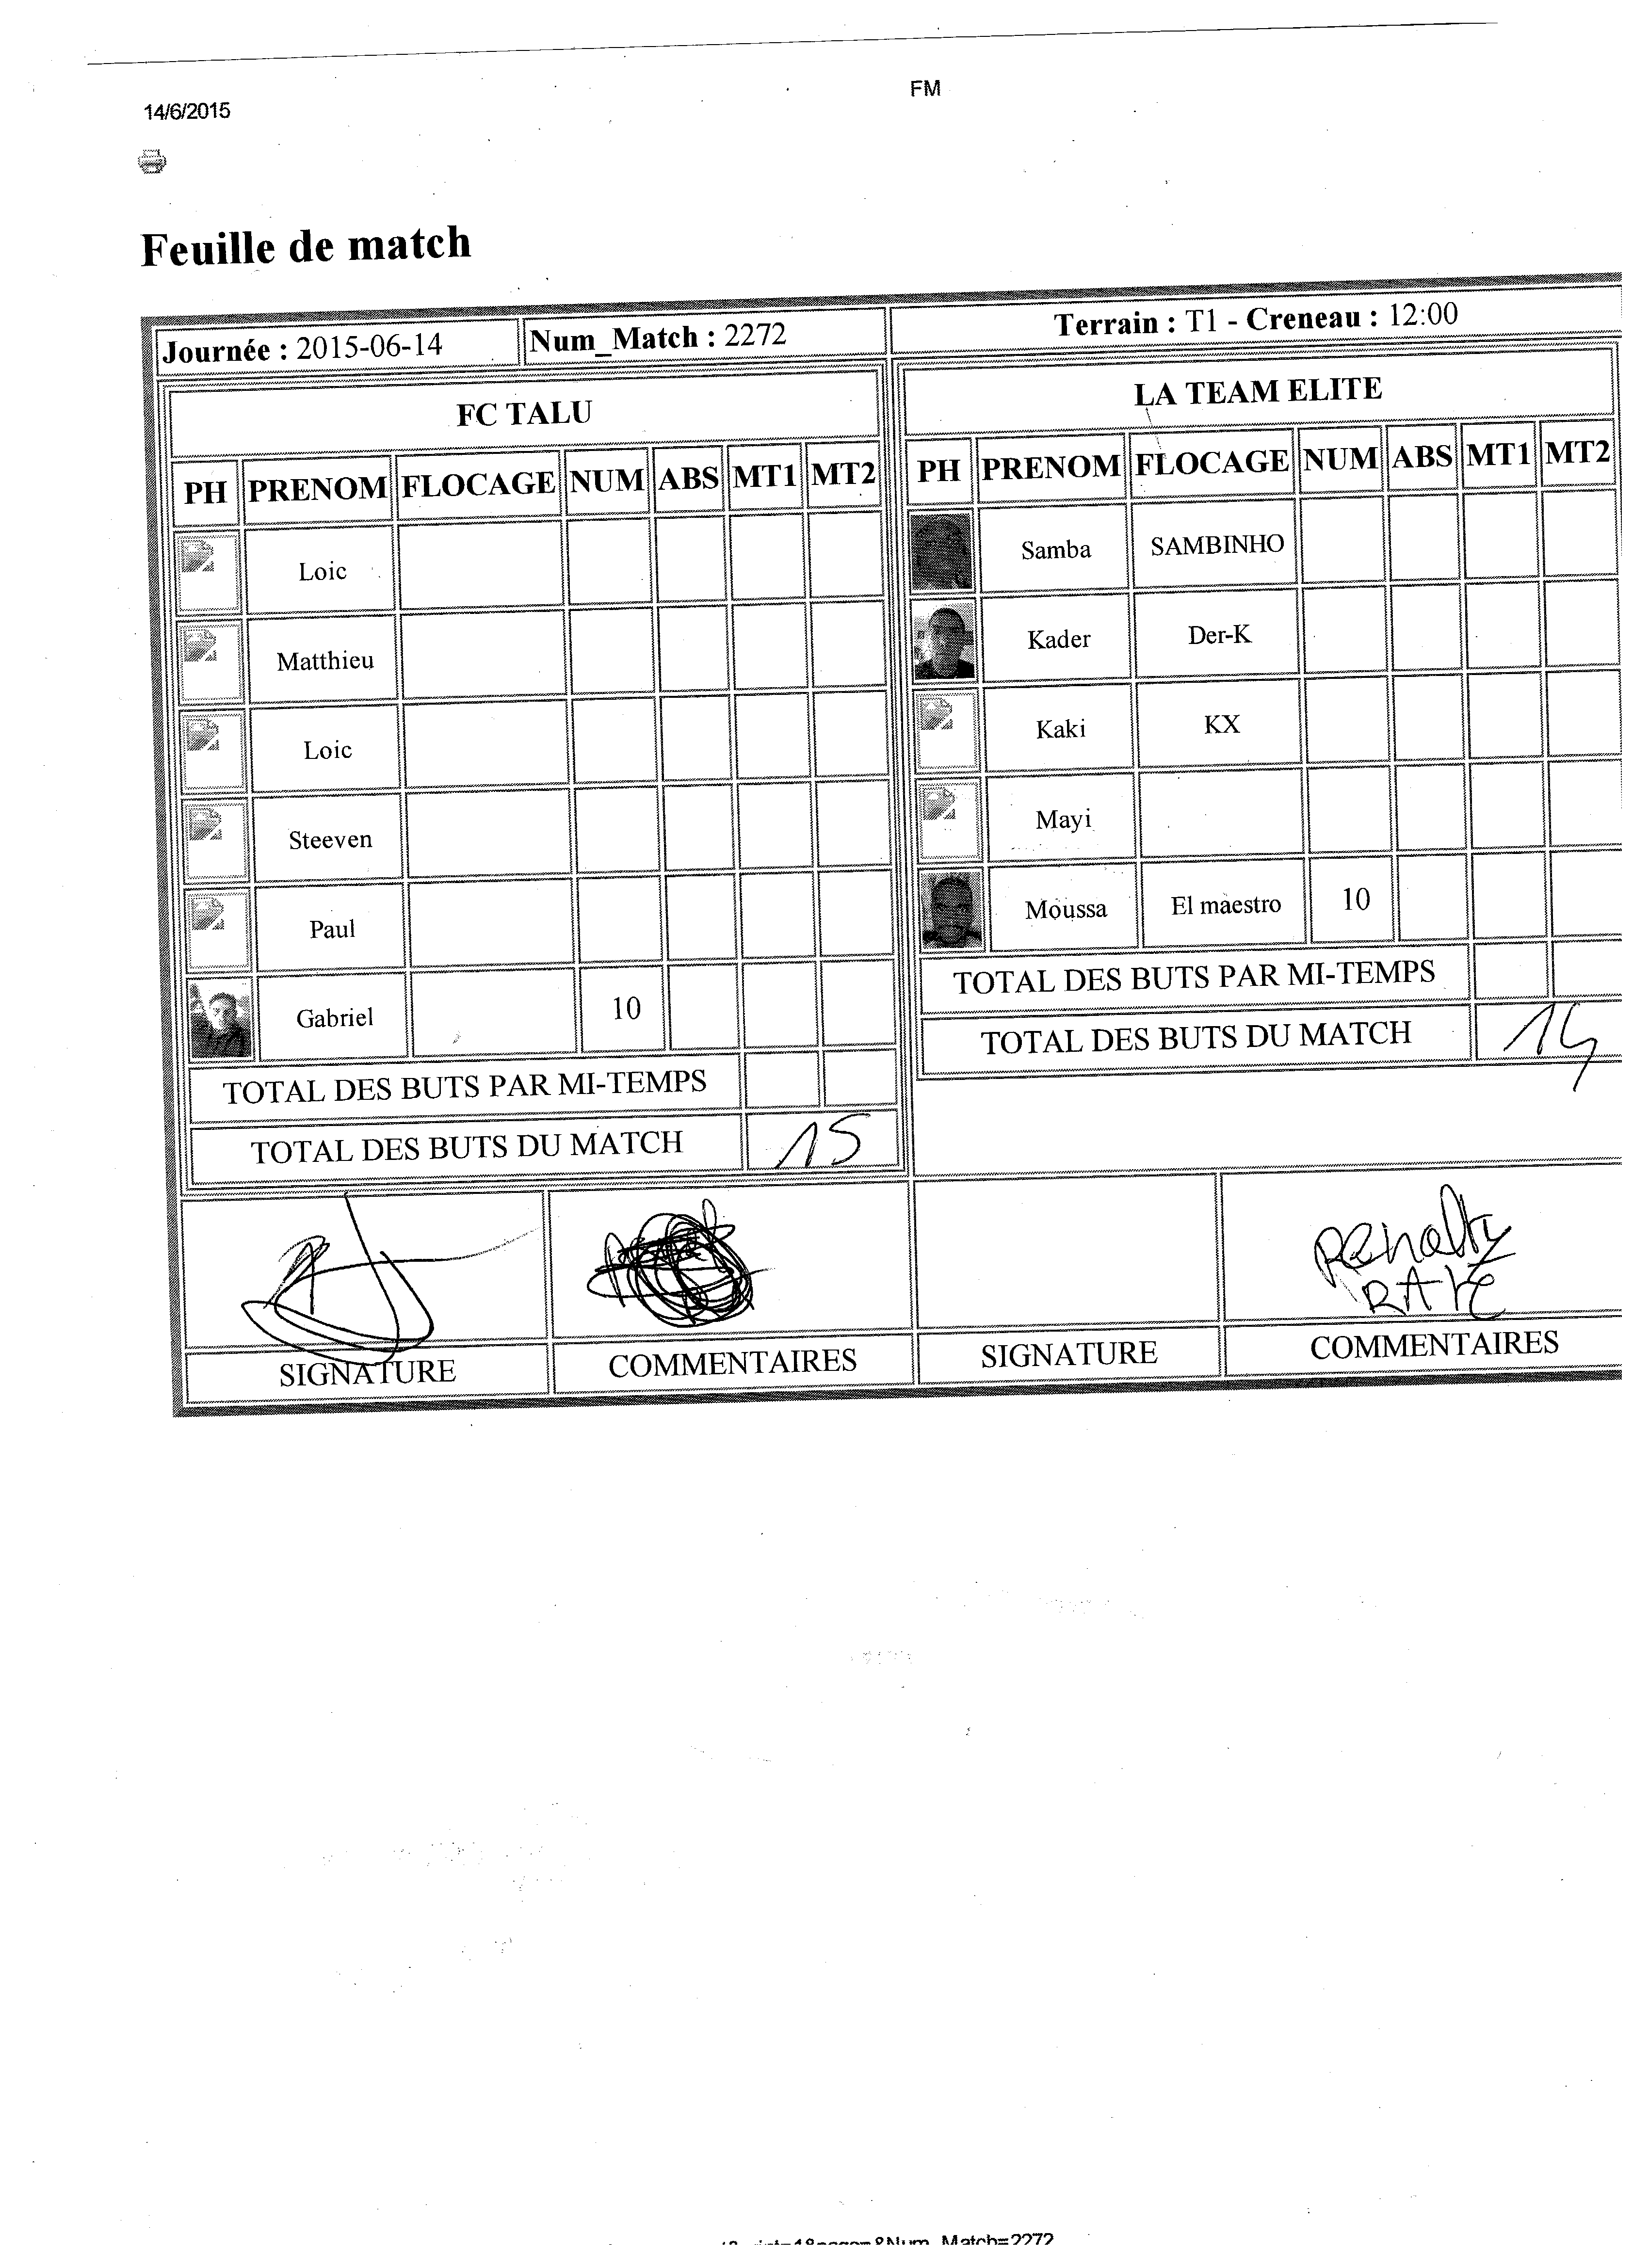 14/6/2015
FM
Feuille de match
Journée : 2015-06-14
Num_Match : 2272
Terrain : T1 - Creneau : 12:00
FC TALU
PH PRENOM FLOCAGE NUM ABS MT1 MT2
Loic
Matthieu
Loic
Steeven
Paul
Gabriel 10
TOTAL DES BUTS PAR MI-TEMPS
TOTAL DES BUTS DU MATCH 15
LA TEAM ELITE
PH PRENOM FLOCAGE NUM ABS MT1 MT2
Samba SAMBINHO
Kader Der-K
Kaki KX
Mayi
Moussa El maestro 10
TOTAL DES BUTS PAR MI-TEMPS
TOTAL DES BUTS DU MATCH 14
Penalty
RATE
SIGNATURE COMMENTAIRES SIGNATURE COMMENTAIRES
Num_Match=2272